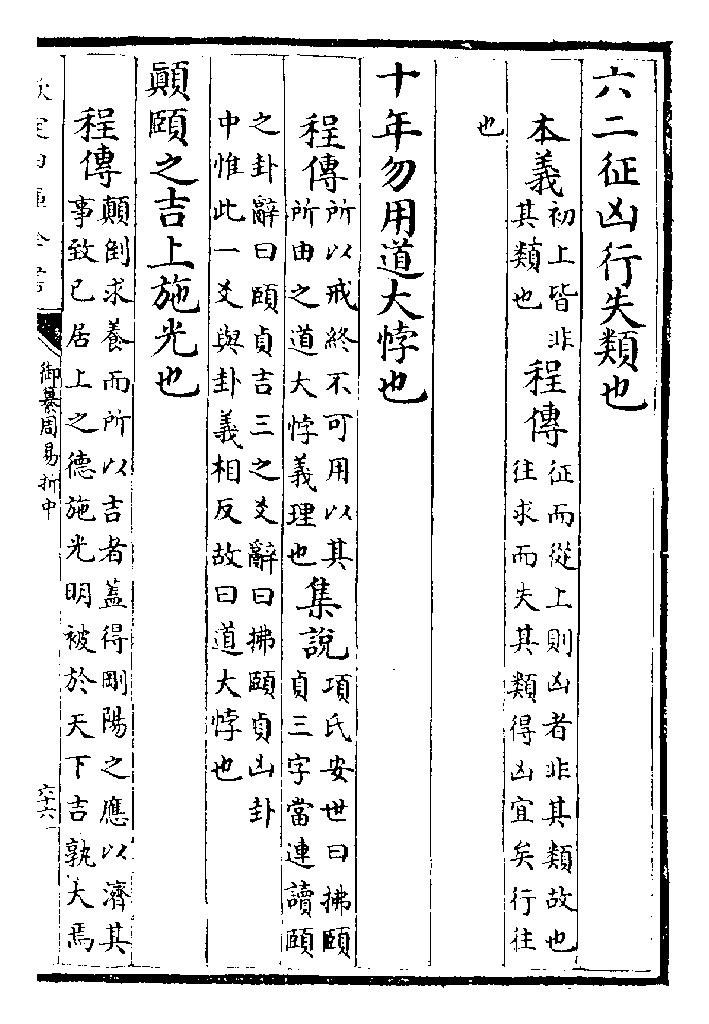 六二征凶行失類也
本義初上皆非
其類也程傳征而從上則凶者非其類故也
往求而失其類得凶宜矣行往
也
十年勿用道大悖也
程傳所以戒終不可用以其
所由之道大悖義理也集說項氏安世曰拂頤
貞三字當連讀頤
之卦辭曰頤貞吉三之爻辭曰拂頤貞凶卦
中惟此一爻與卦義相反故曰道大悖也
顚頤之吉上施光也
程傳顚倒求養而所以吉者蓋得剛陽之應以濟其
事致己居上之德施光明被於天下吉孰大焉
欽定四庫全書
御纂周易折中
六十六